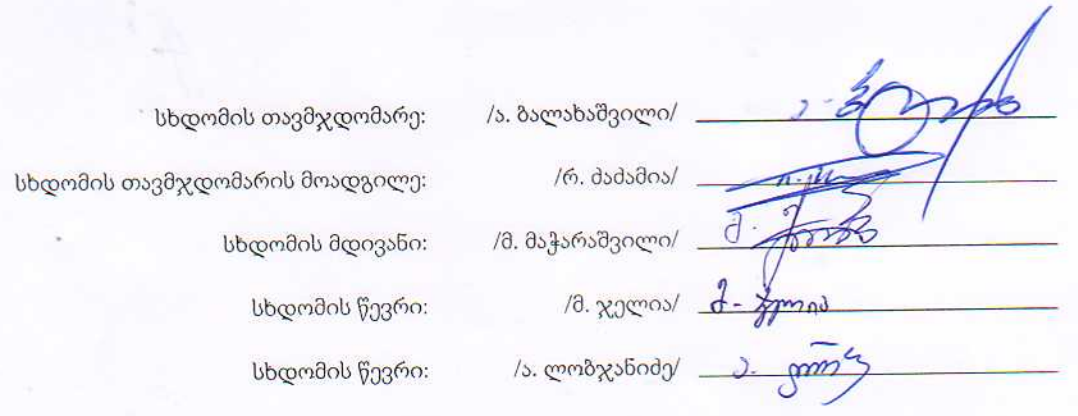 სხდომის თავმჯდომარე: /ა. ბალახაშვილი/
სხდომის თავმჯდომარის მოადგილე: /რ. ძაძამია/
სხდომის მდივანი: /მ. მაჭარაშვილი/
სხდომის წევრი: /მ. ჯელია/ მ. ჯელია
სხდომის წევრი: /ა. ლობჯანიძე/